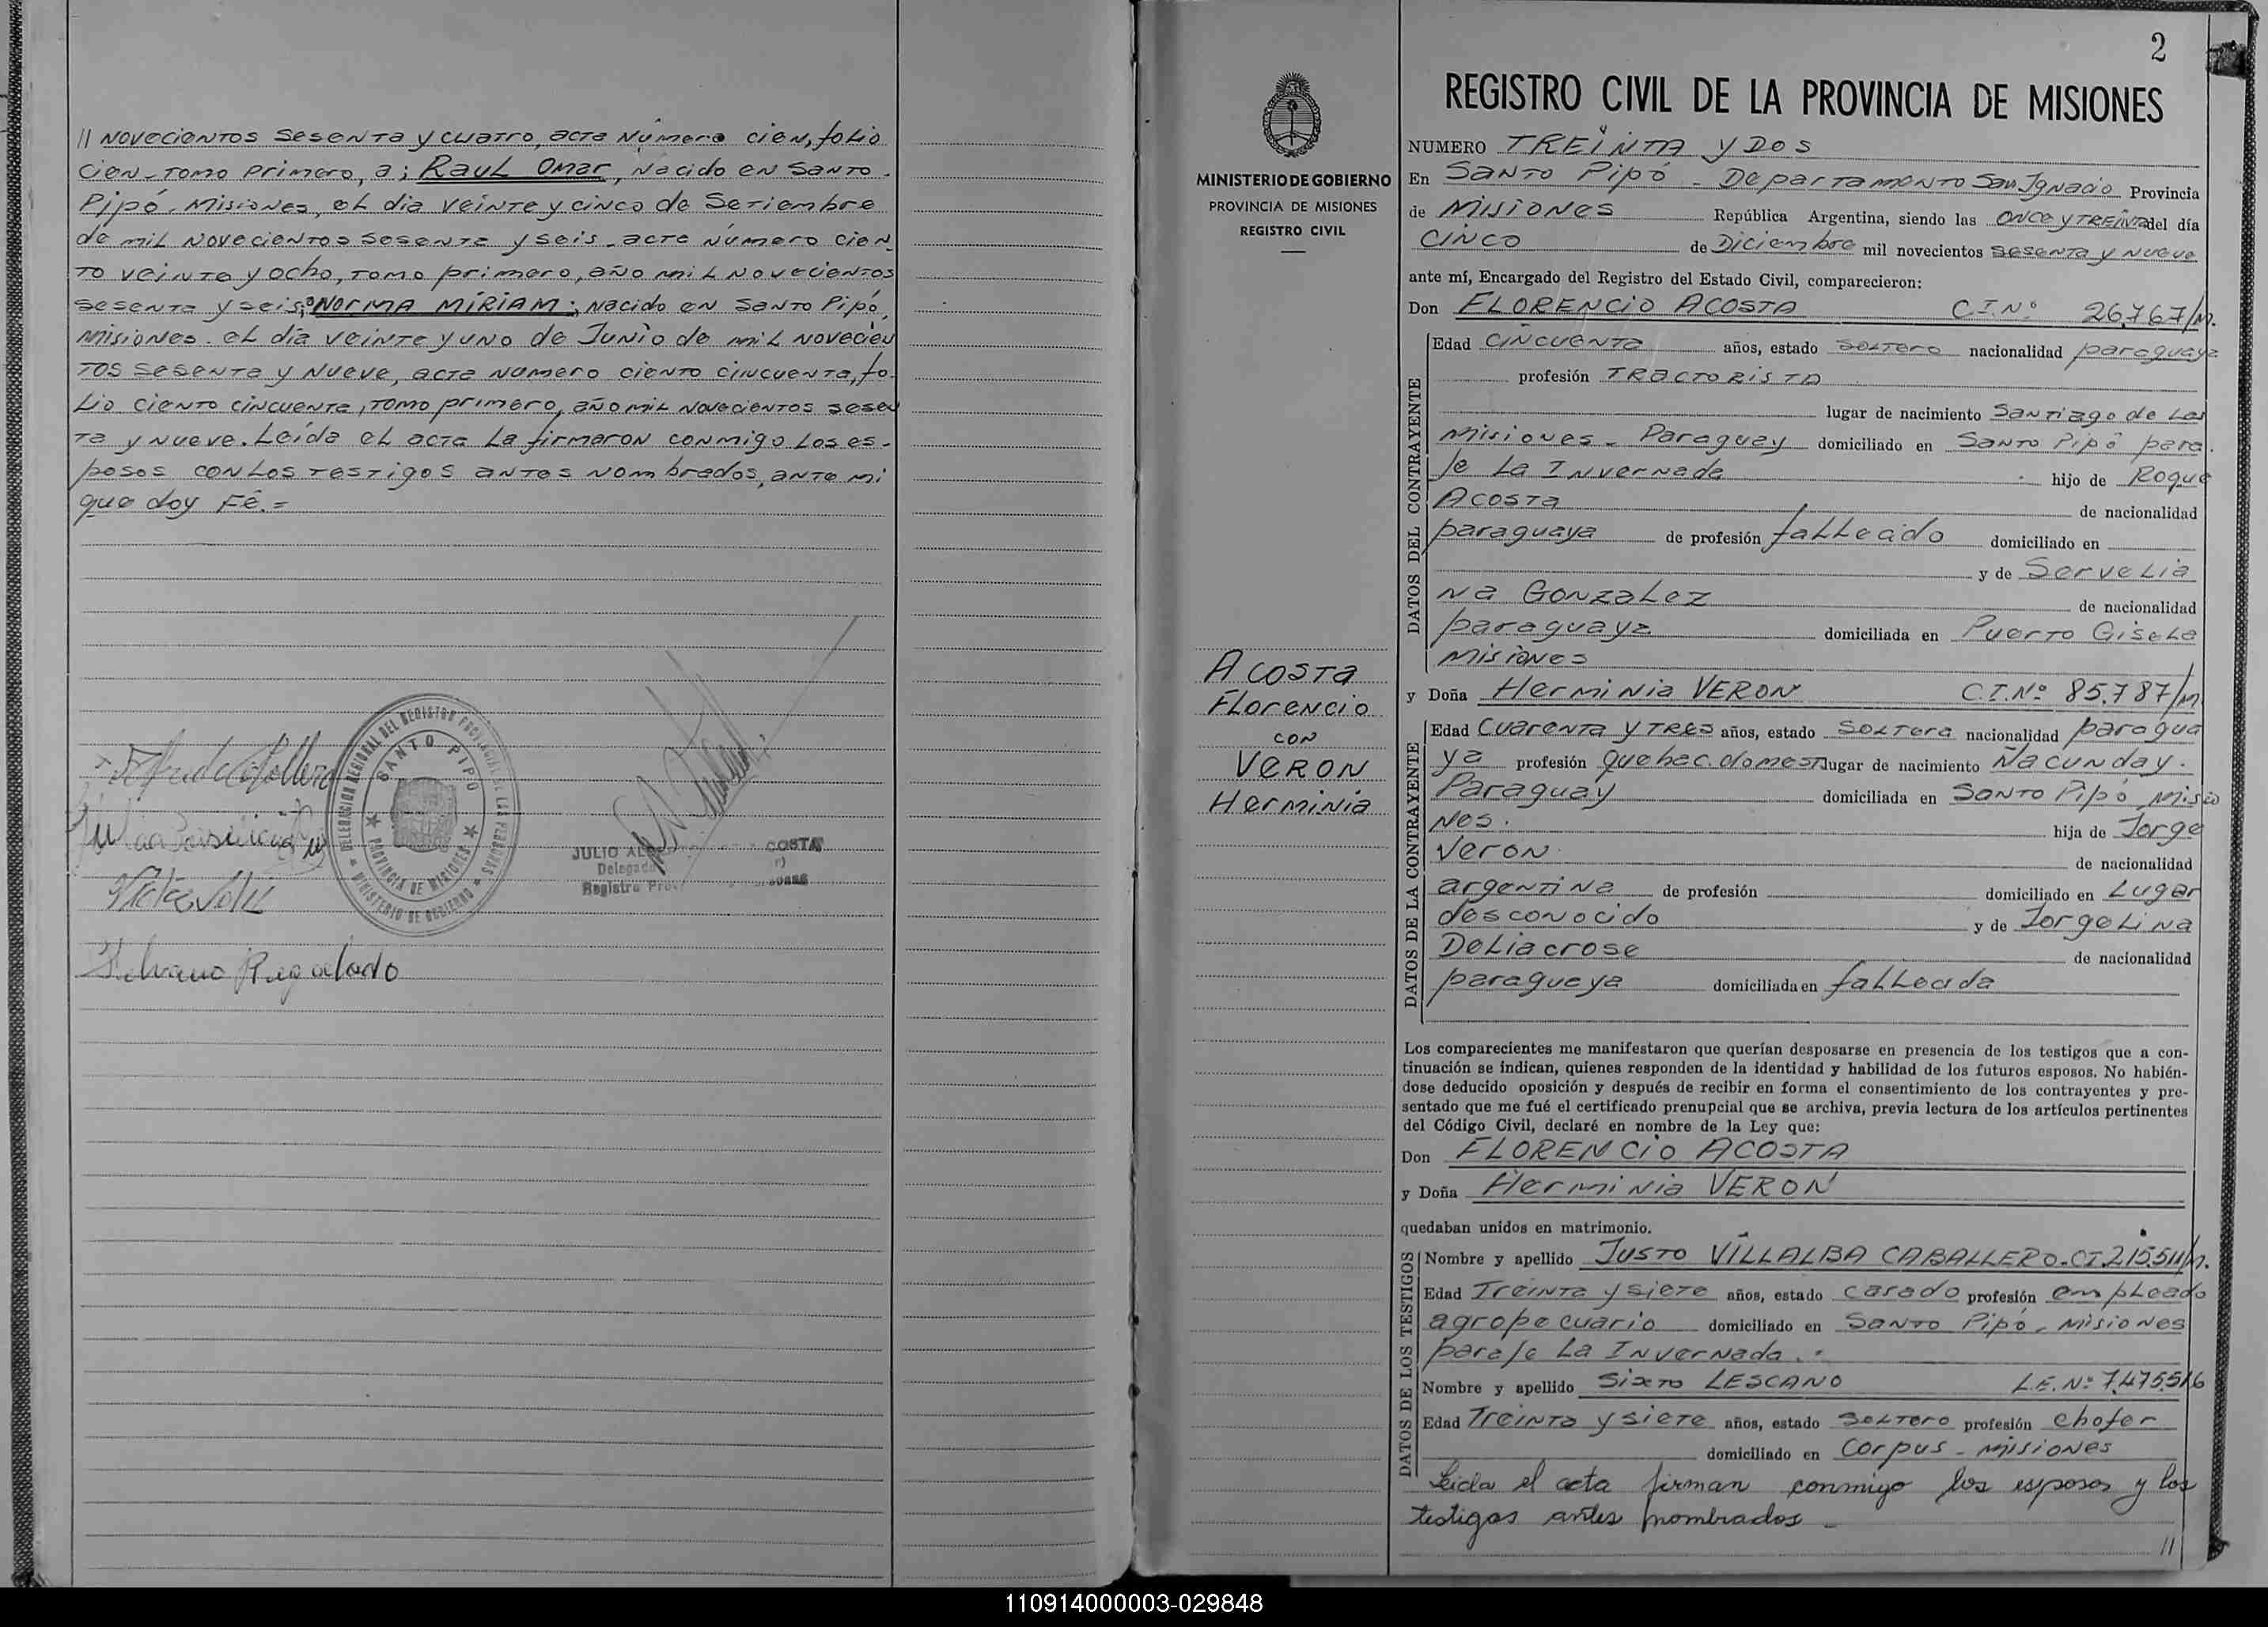 // Novecientos sesenta y cuatro, acta número cien, folio
cien - tomo primero, a; Raul Omar, nacido en Santo
Pipó, Misiones, el dia veinte y cinco de Setiembre
de mil novecientos sesenta y seis - acta número cien
to veinte y ocho, tomo primero, año mil novecientos
sesenta y seis; NORMA MIRIAM; nacido en Santo Pipó,
Misiones. el dia veinte y uno de Junio de mil novecien
tos sesenta y nueve, acta numero ciento cincuenta, fo-
lio ciento cincuenta, tomo primero, año mil novecientos sesen
ta y nueve. Leída el acta la firmaron conmigo los es-
posos con los testigos antes nombrados, ante mi
que doy Fé.=
DELEGACION REGIONAL DEL REGISTRO PROVINCIAL DE LAS PERSONAS
SANTO PIPO
PROVINCIA DE MISIONES
MINISTERIO DE GOBIERNO
JULIO COSTA
Delegado
Registro
Regalado
2
MINISTERIO DE GOBIERNO
PROVINCIA DE MISIONES
REGISTRO CIVIL
Acosta
Florencio
con
VERON
Herminia
REGISTRO CIVIL DE LA PROVINCIA DE MISIONES
NUMERO TREINTA y DOS
En Santo Pipó - Departamento San Ignacio Provincia
de Misiones República Argentina, siendo las once y treinta del día
cinco de Diciembre mil novecientos sesenta y nueve
ante mí, Encargado del Registro del Estado Civil, comparecieron:
Don FLORENCIO ACOSTA C.I.Nº 26.767/M.
DATOS DEL CONTRAYENTE
Edad cincuenta años, estado soltero nacionalidad paraguaya
profesión TRACTORISTA
lugar de nacimiento Santiago de Las
Misiones - Paraguay domiciliado en Santo Pipó para
je La Invernada hijo de Roque
Acosta de nacionalidad
paraguaya de profesión fallecido domiciliado en
y de Servelia
na Gonzalez de nacionalidad
paraguaya domiciliada en Puerto Gisela
Misiones
y Doña Herminia VERON C.I.Nº 85.787/M
DATOS DE LA CONTRAYENTE
Edad Cuarenta y tres años, estado soltera nacionalidad paragua
ya profesión quehac. domest lugar de nacimiento Ñacunday.
Paraguay domiciliada en Santo Pipó Misio
nes. hija de Jorge
Veron de nacionalidad
argentina de profesión domiciliado en Lugar
desconocido y de Jorgelina
Deliacrose de nacionalidad
paraguaya domiciliada en fallecida
Los comparecientes me manifestaron que querían desposarse en presencia de los testigos que a con-
tinuación se indican, quienes responden de la identidad y habilidad de los futuros esposos. No habién-
dose deducido oposición y después de recibir en forma el consentimiento de los contrayentes y pre-
sentado que me fué el certificado prenupcial que se archiva, previa lectura de los artículos pertinentes
del Código Civil, declaré en nombre de la Ley que:
Don FLORENCIO ACOSTA
y Doña Herminia VERON
quedaban unidos en matrimonio.
DATOS DE LOS TESTIGOS
Nombre y apellido Justo VILLALBA CABALLERO - CI.215.511/M.
Edad Treinta y siete años, estado casado profesión empleado
agropecuario domiciliado en Santo Pipó, Misiones
paraje La Invernada.
Nombre y apellido Sixto LESCANO L.E.Nº 7.475.516
Edad Treinta y siete años, estado soltero profesión chofer
domiciliado en Corpus - Misiones
Leida el acta firman conmigo los esposos y los
testigos antes nombrados -
//
110914000003-029848